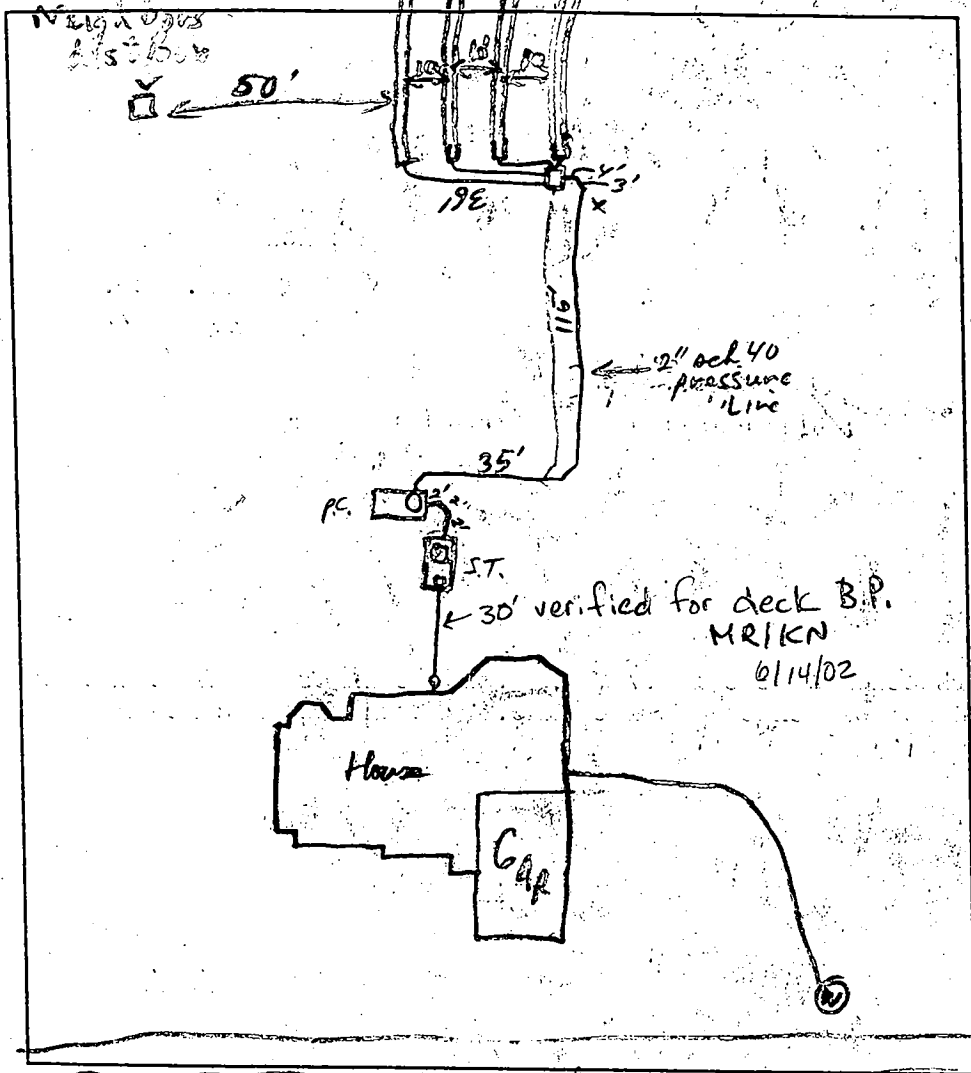 Neighbors
Dist Box
50'
10'
10'
10'
36'
4'
3'
x
116'
2" sch 40
pressure
Line
35'
P.C.
2'
2'
S.T.
30' verified for deck B.P.
MR/KN
6/14/02
House
GAR
W